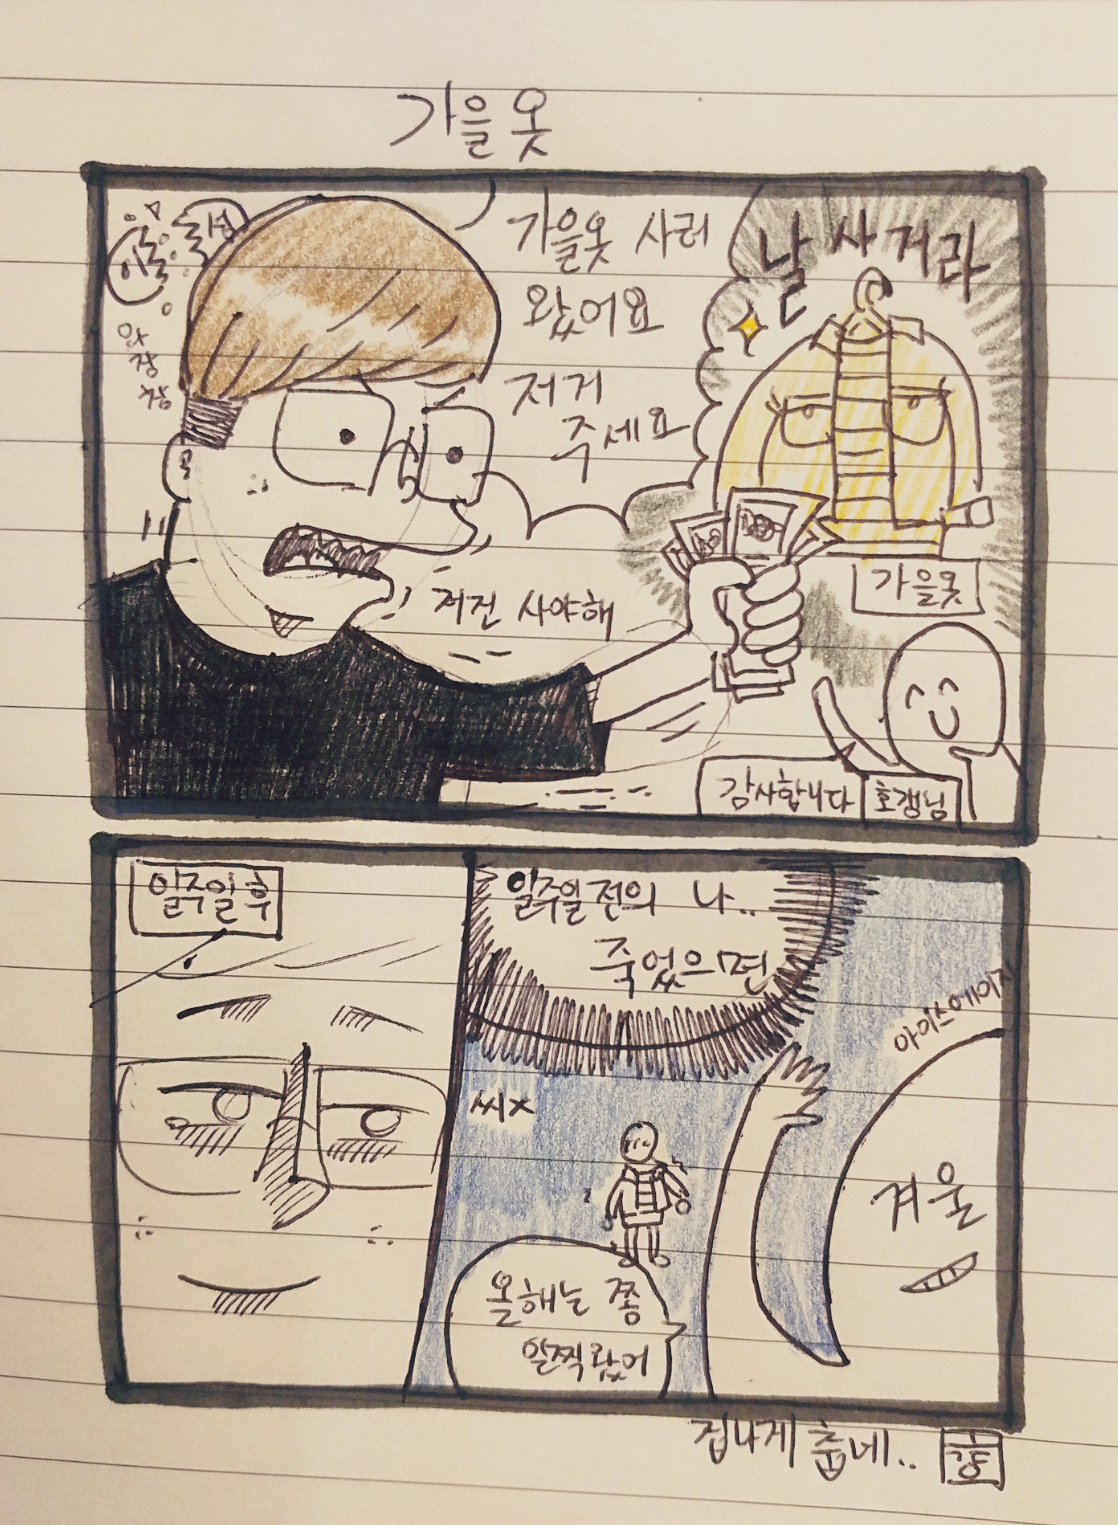 가을옷
가을옷 사러
왔어요
저거
주세요
날 사거라
이월
와장창
저건 사야해
가을옷
감사합니다
호갱님
일주일 후
일주일 전의 나..
죽었으면
아이스에이지
씨x
겨울
올해는 쫌
일찍왔어
집나게 춥네..